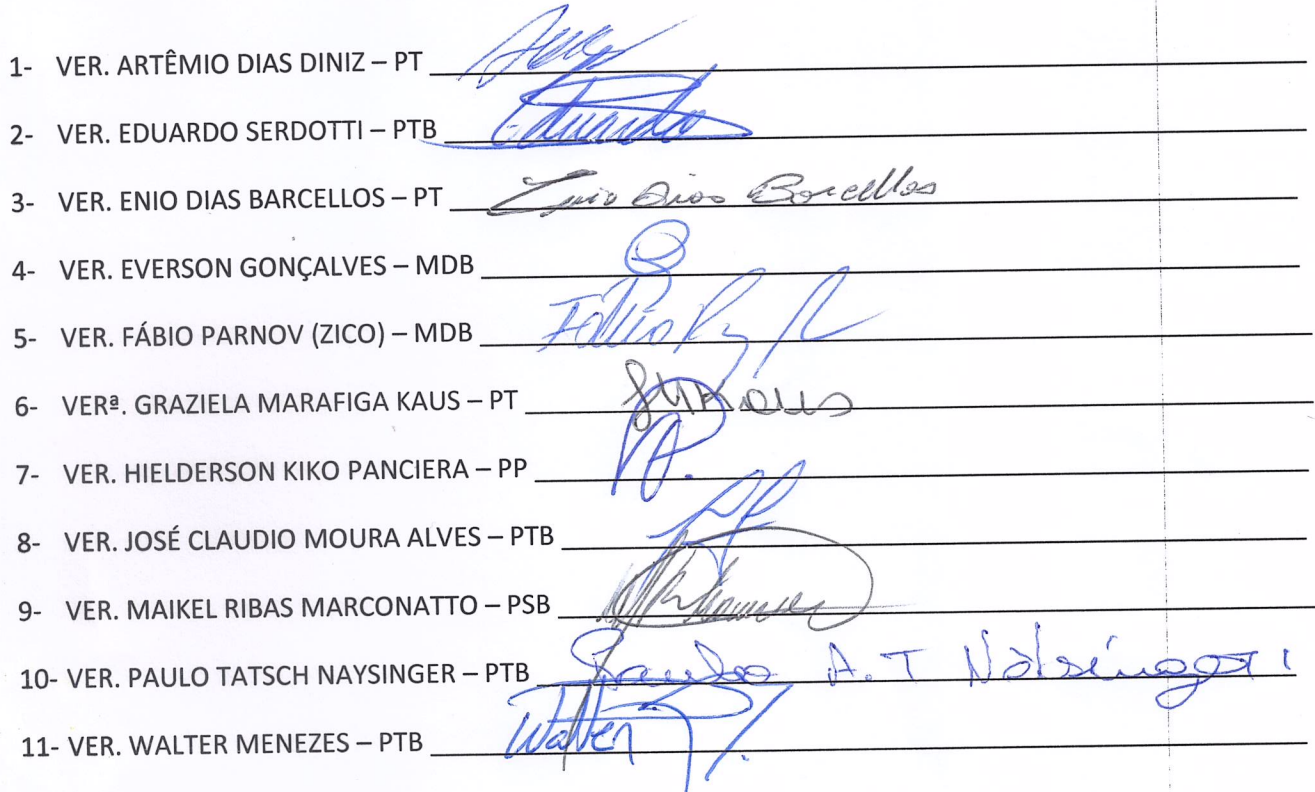 1- VER. ARTÊMIO DIAS DINIZ – PT
2- VER. EDUARDO SERDOTTI – PTB Eduardo
3- VER. ENIO DIAS BARCELLOS – PT Enio Dias Barcellos
4- VER. EVERSON GONÇALVES – MDB
5- VER. FÁBIO PARNOV (ZICO) – MDB Fábio
6- VERª. GRAZIELA MARAFIGA KAUS – PT GMKaus
7- VER. HIELDERSON KIKO PANCIERA – PP
8- VER. JOSÉ CLAUDIO MOURA ALVES – PTB
9- VER. MAIKEL RIBAS MARCONATTO – PSB
10- VER. PAULO TATSCH NAYSINGER – PTB Paulo A.T
11- VER. WALTER MENEZES – PTB Walter